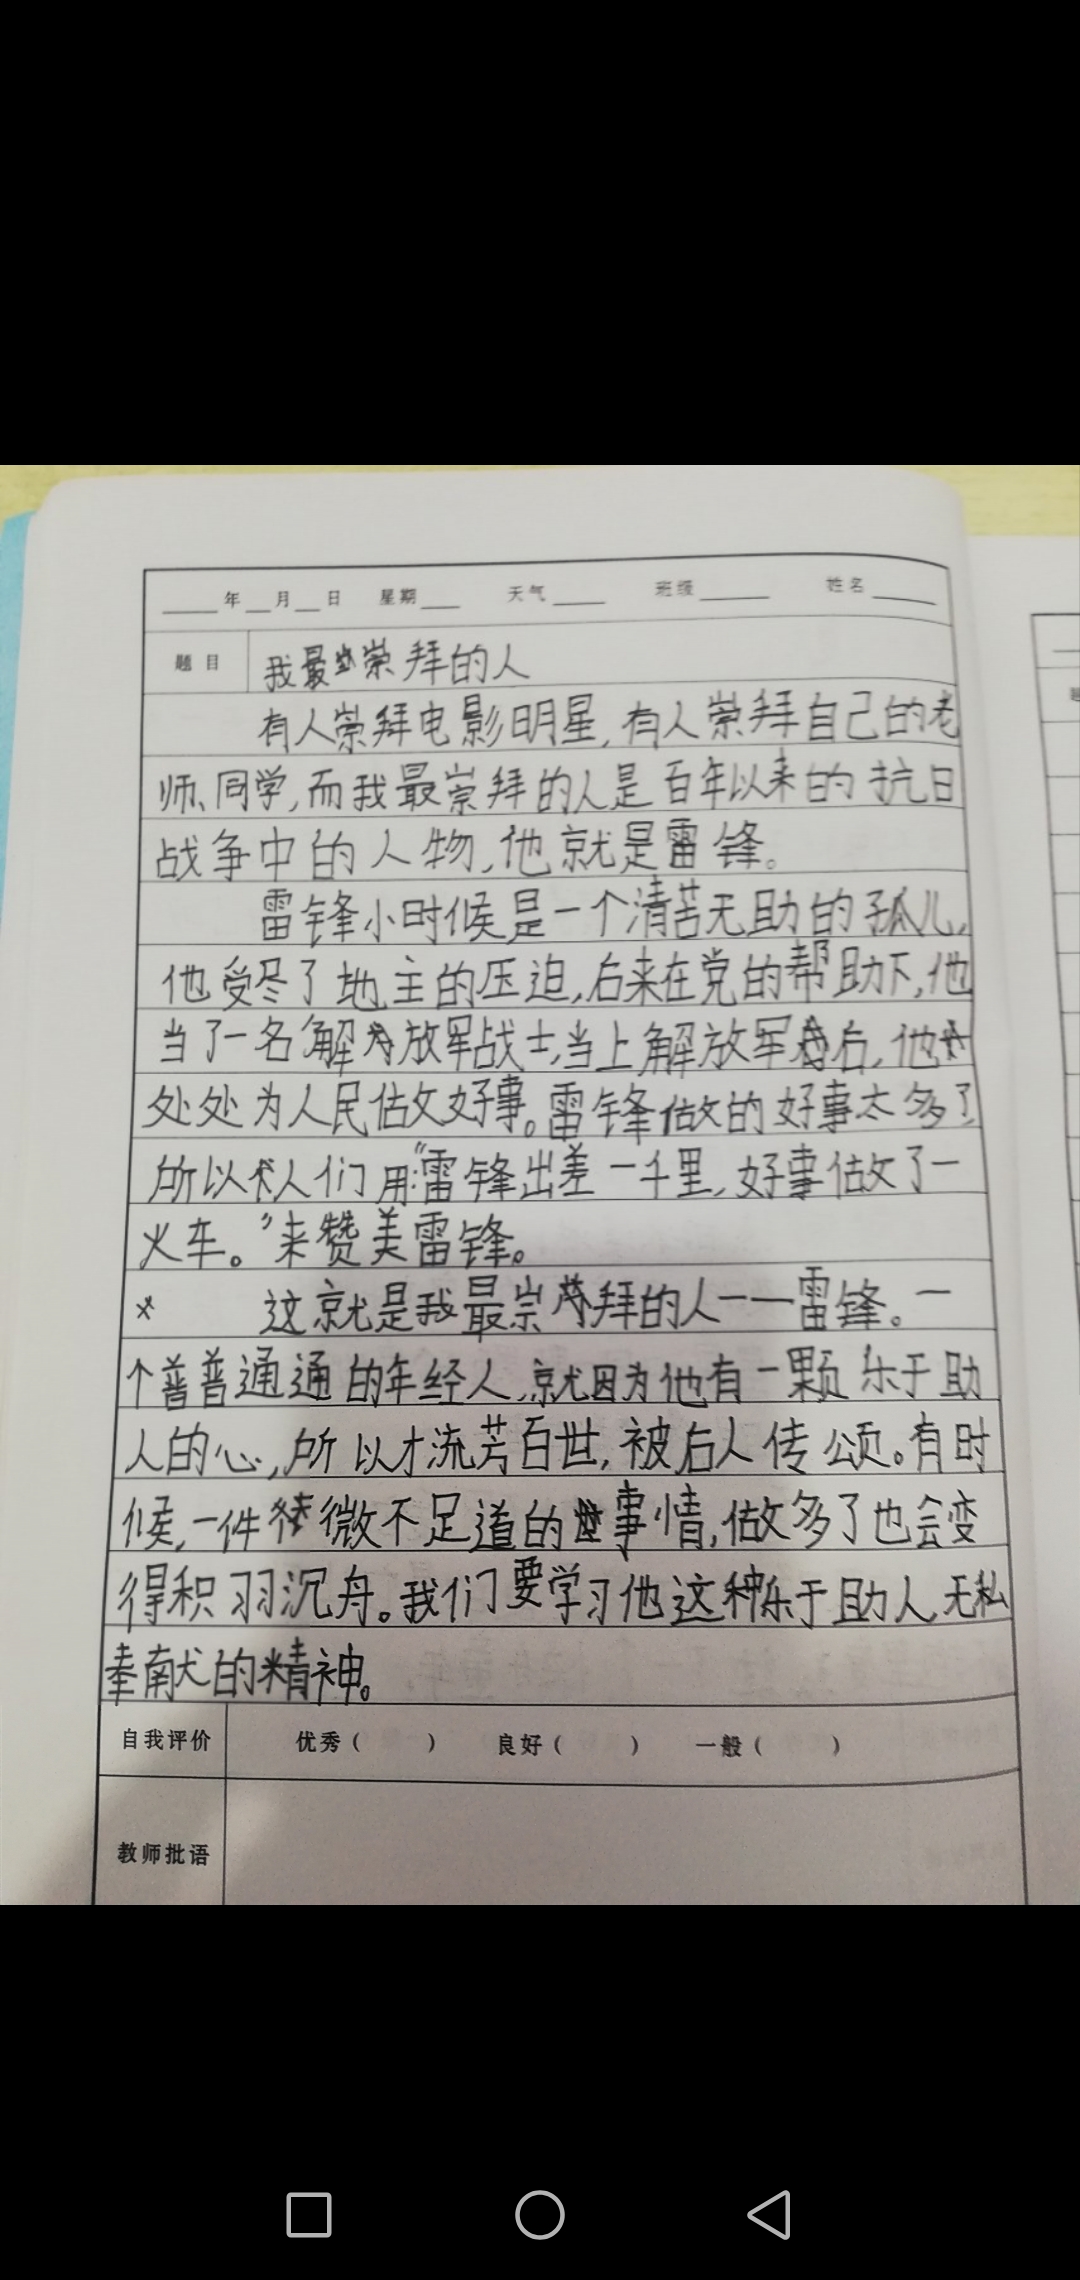 年 月 日 星期 天气 班级 姓名
题目 我最崇拜的人
有人崇拜电影明星,有人崇拜自己的老
师、同学,而我最崇拜的人是百年以来的抗日
战争中的人物,他就是雷锋。
雷锋小时候是一个清苦无助的孤儿,
他受尽了地主的压迫,后来在党的帮助下,他
当了一名解放军战士,当上解放军后,他
处处为人民做好事。雷锋做的好事太多了
所以人们用:“雷锋出差一千里,好事做了一
火车。”来赞美雷锋。
这就是我最崇拜的人——雷锋。一
个普普通通的年经人,就因为他有一颗乐于助
人的心,所以才流芳百世,被后人传颂。有时
候,一件微不足道的事情,做多了也会变
得积羽沉舟。我们要学习他这种乐于助人,无私
奉献的精神。
自我评价 优秀( ) 良好( ) 一般( )
教师批语